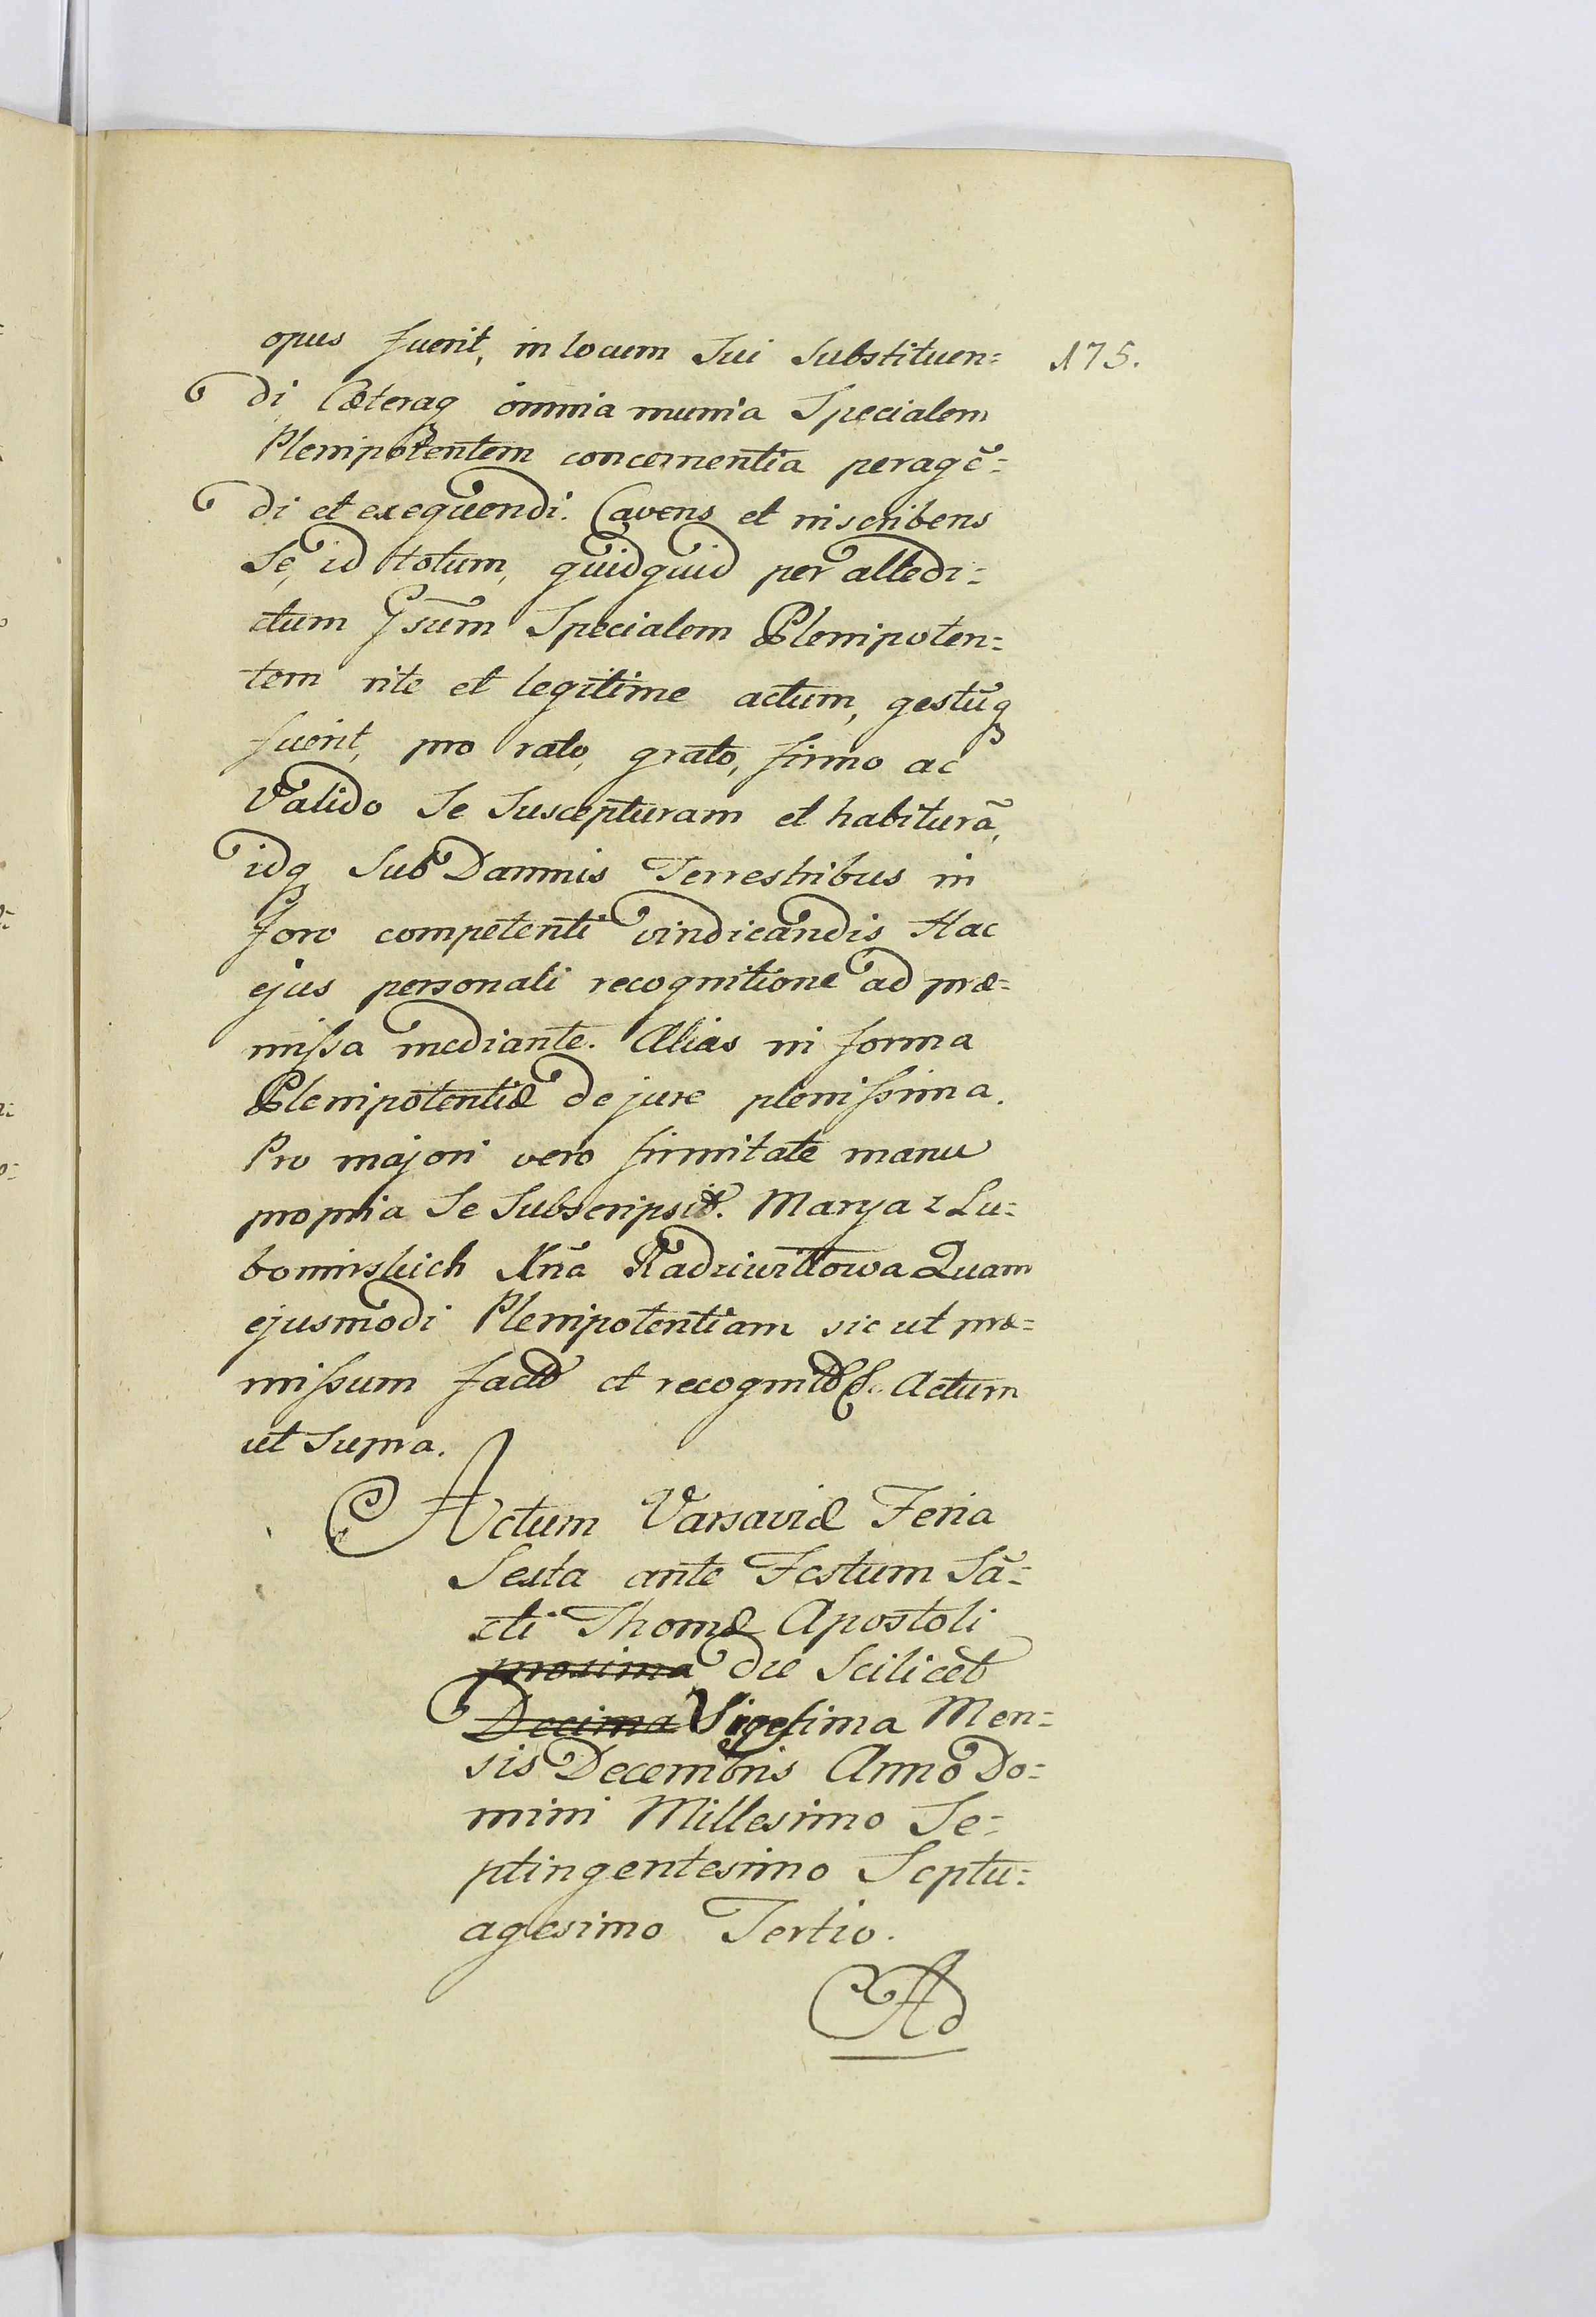 opus fuerit, in locum Sui Substituen=
175.
di Cæteraq omnia munia Specialem
Plenipotentem concernentia peragē=
di et exequendi. Cavens et inscribens
Se, id totum, quidquid per altedi=
ctum Gsum Specialem Plenipoten=
tem rite et legitime actum, gestūq
fuerit, pro rato, grato, firmo ac
Valido Se Suscepturam et habiturā,
idq Sub Damnis Terrestribus in
foro competenti vindicandis. Hac
ejus personali recognitione ad præ=
missa mediante. Alias in forma
Plenipotentiæ de jure plenissima.
Pro majori vero firmitate manu
propria Se Subscripsit. Marya z Lu=
bomirskich Xna Radziwiłłowa Quam
ejusmodi Plenipotentiam sic ut præ=
missum facto et recognito Actum
ut Supra.
Actum Varsaviæ Feria
Sexta ante Festum Sā=
cti Thomæ Apostoli
proxima die Scilicet
Decima Vigesima Men=
sis Decembris Anno Do=
mini Millesimo Se=
ptingentesimo Septu=
agesimo Tertio.
Ad